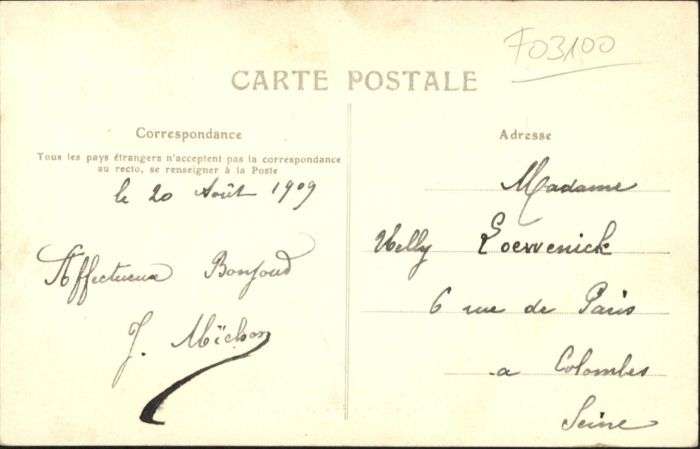 F03100
CARTE POSTALE
Correspondance
Tous les pays étrangers n'acceptent pas la correspondance
au recto, se renseigner à la Poste
le 20 Août 1909
Affectueux Bonjoud
J. Mïchon
Adresse
Madame
Nelly Loewenick
6 rue de Paris
a Colombes
Seine